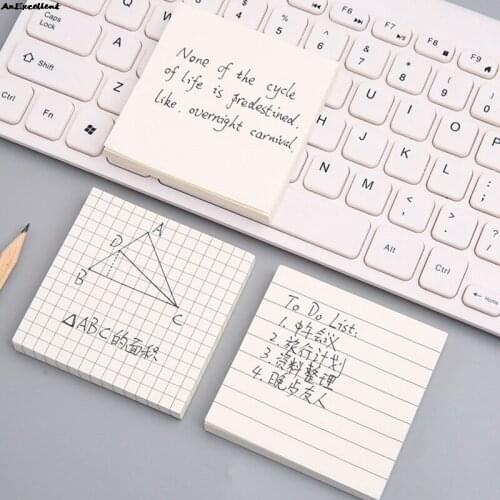 AnExcellent
None of the cycle
of life is predestined.
like. overnight carnival.
A
D
B
C
△ABC的面积
To Do List:
1. 午会议
2. 旅行计划
3. 资料整理
4. 晚与友人
Caps Lock
Shift
Ctrl
Fn
Q
A
Z
F6
F7
F8
F9
7
8
9
Y
U
I
O
H
J
K
L
N
M
Alt
Ctrl